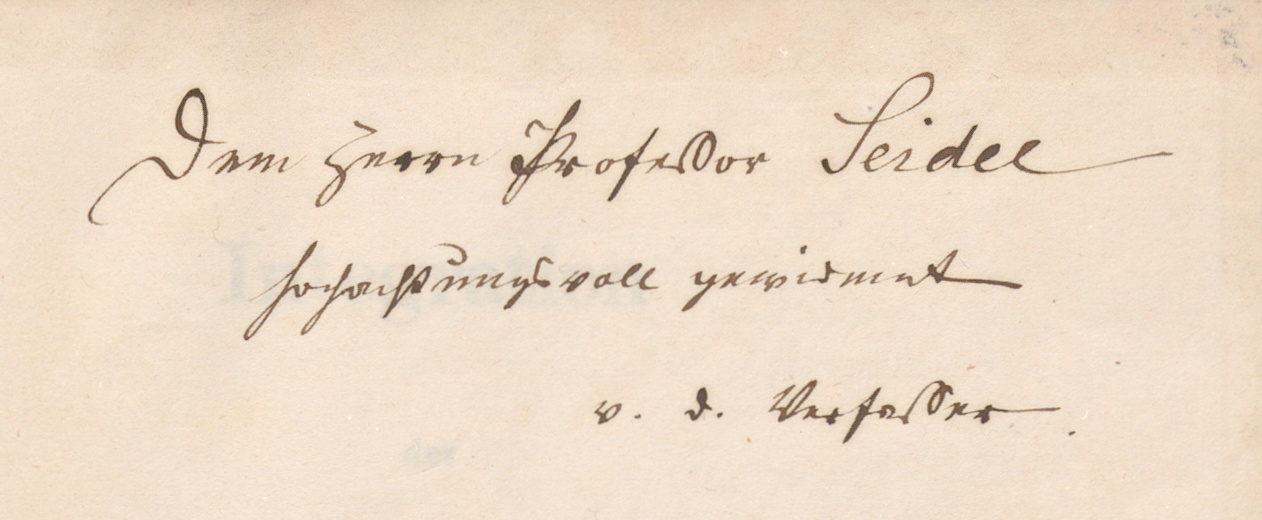 Dem Herrn Professor Seidel
hochachtungsvoll gewidmet
v. d. Verfasser.